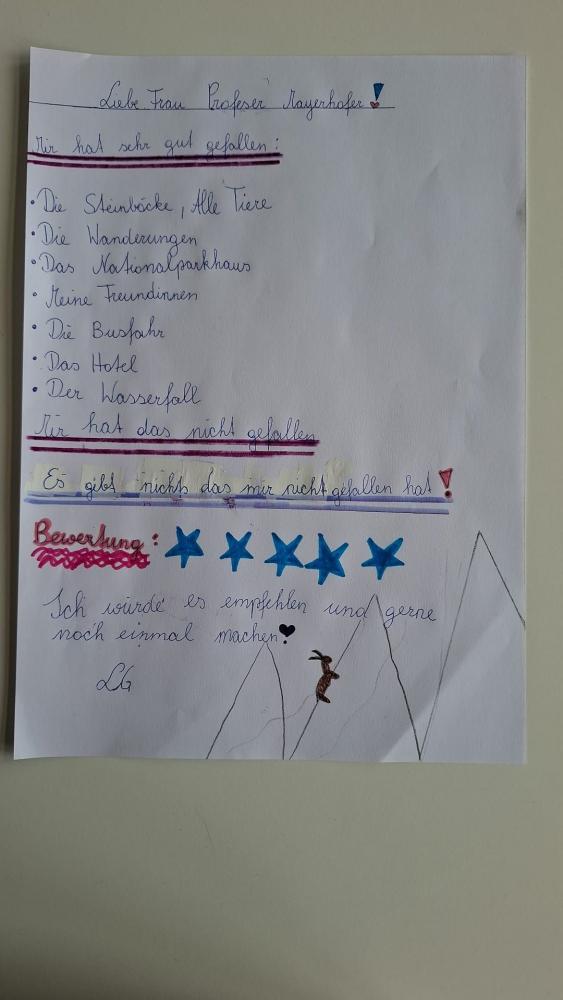 Liebe Frau Profeser Mayerhofer!
Mir hat sehr gut gefallen:
• Die Steinböcke, Alle Tiere
• Die Wanderungen
• Das Nationalparkhaus
• Meine Freundinnen
• Die Busfahr
• Das Hotel
• Der Wasserfall
Mir hat das nicht gefallen
Es gibt nichts das mir nicht gefallen hat!
Bewertung:
Ich würde es empfehlen und gerne
noch einmal machen
LG